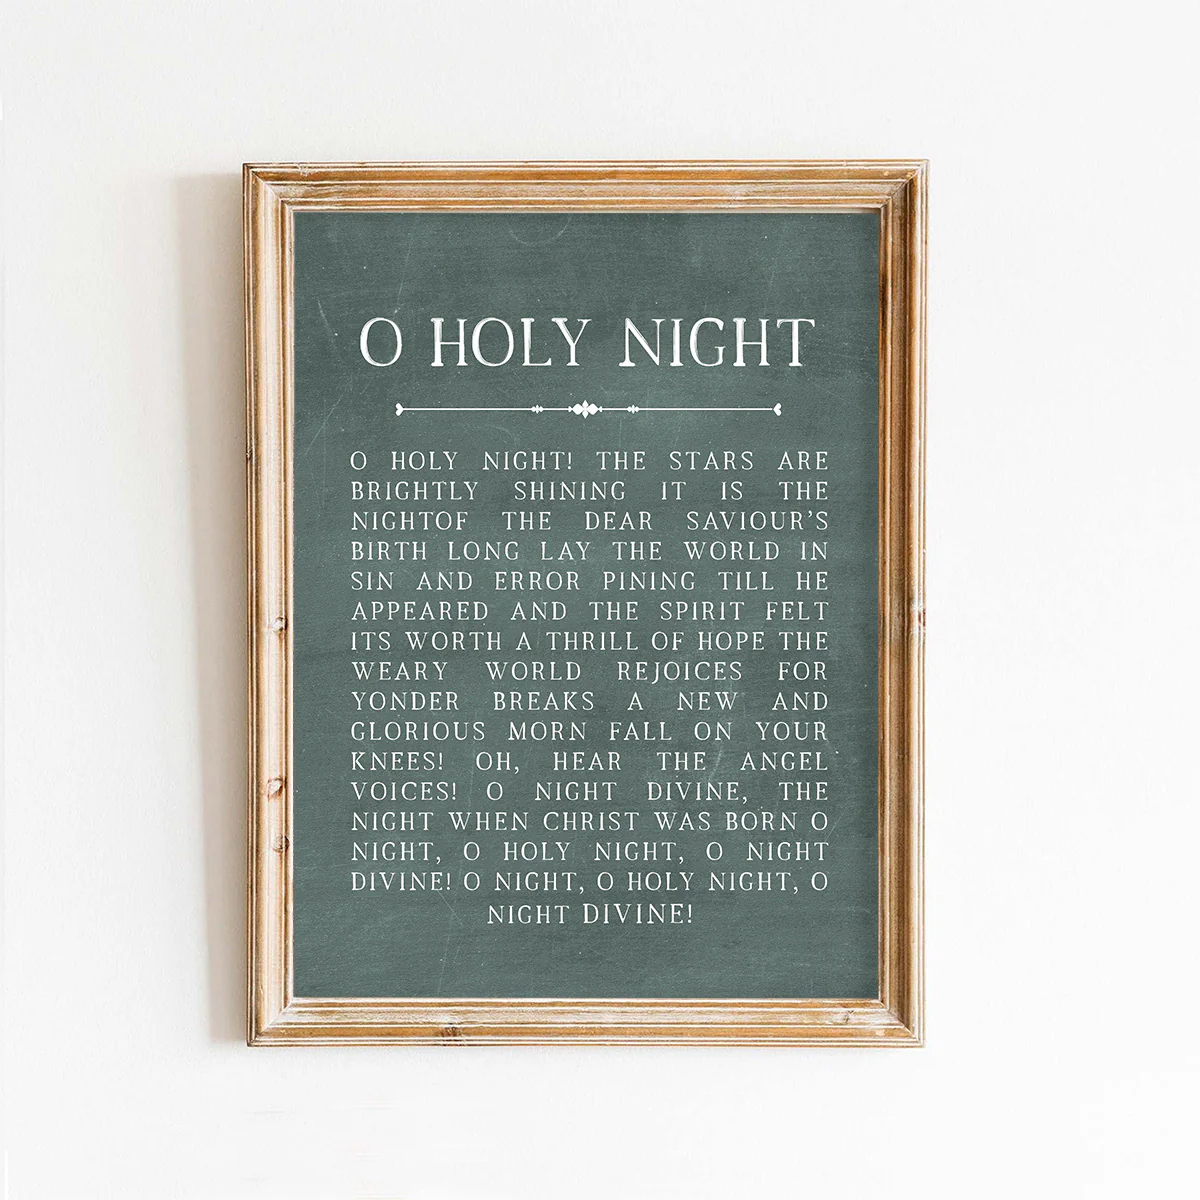 O HOLY NIGHT
O HOLY NIGHT! THE STARS ARE
BRIGHTLY SHINING IT IS THE
NIGHTOF THE DEAR SAVIOUR'S
BIRTH LONG LAY THE WORLD IN
SIN AND ERROR PINING TILL HE
APPEARED AND THE SPIRIT FELT
ITS WORTH A THRILL OF HOPE THE
WEARY WORLD REJOICES FOR
YONDER BREAKS A NEW AND
GLORIOUS MORN FALL ON YOUR
KNEES! OH, HEAR THE ANGEL
VOICES! O NIGHT DIVINE, THE
NIGHT WHEN CHRIST WAS BORN O
NIGHT, O HOLY NIGHT, O NIGHT
DIVINE! O NIGHT, O HOLY NIGHT, O
NIGHT DIVINE!